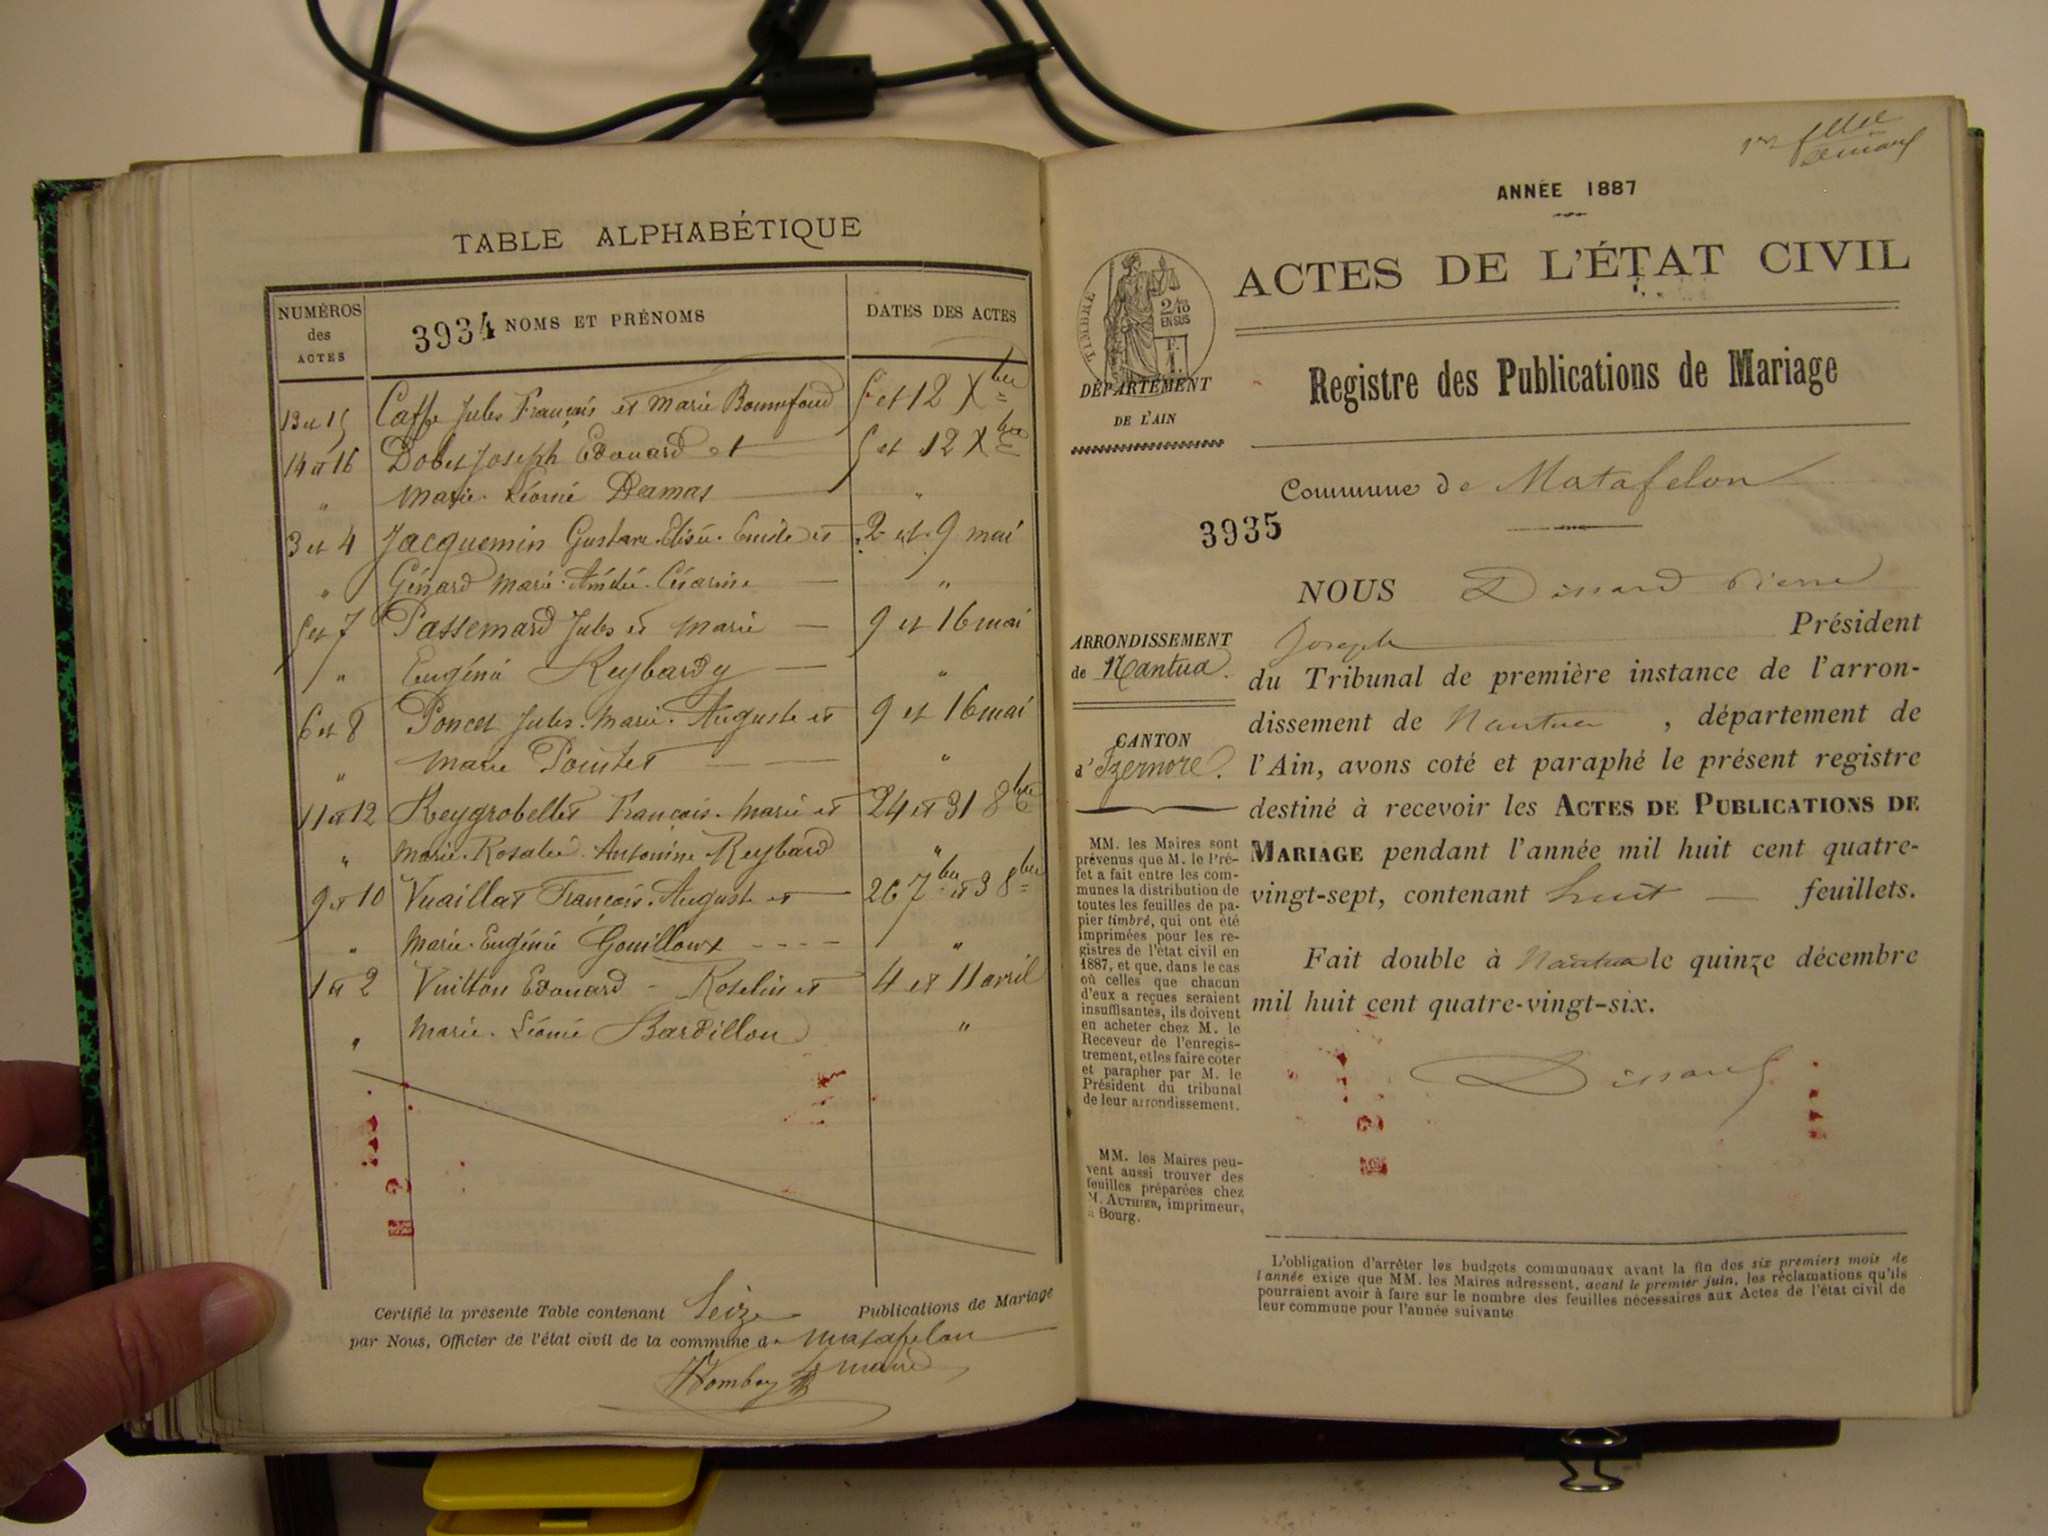 TABLE ALPHABÉTIQUE
NUMÉROS
des
ACTES
3934 NOMS ET PRÉNOMS
DATES DES ACTES
13 et 15 Caffe Jules François et Marie Bonnefond 5 et 12 Xbre
14 et 16 Dobet Joseph Edouard et 5 et 12 Xbre
" Marie Léonie Deamas "
3 et 4 Jacquemin Gustave Elisée Emile et 2 et 9 mai
" Génard Marie Amélie Césarine "
5 et 7 Passemard Jules et Marie 9 et 16 mai
" Eugénie Reybardy "
6 et 8 Poncet Jules Marie Auguste et 9 et 16 mai
" Marie Pointet "
11 et 12 Reygrobellet François Marie et 24 et 31 8bre
" Marie Rosalie Antonine Reybard "
9 et 10 Vuaillat François Auguste et 26 7bre et 3 8bre
" Marie Eugénie Gouilloux "
1 et 2 Vuitton Edouard - Roselin et 4 et 11 avril
" Marie Léonie Bardillon "
Certifié la présente Table contenant Seize Publications de Mariage
par Nous, Officier de l'état civil de la commune de Matafelon
le maire
ANNÉE 1887
ACTES DE L'ÉTAT CIVIL
TIMBRE
2/10
EN SUS
DÉPARTEMENT
DE L'AIN
Registre des Publications de Mariage
Commune de Matafelon
3935
NOUS Dissard Pierre
Joseph Président
du Tribunal de première instance de l'arron-
dissement de Nantua, département de
l'Ain, avons coté et paraphé le présent registre
destiné à recevoir les ACTES DE PUBLICATIONS DE
MARIAGE pendant l'année mil huit cent quatre-
vingt-sept, contenant huit feuillets.
Fait double à Nantua le quinze décembre
mil huit cent quatre-vingt-six.
Dissard
ARRONDISSEMENT
de Nantua.
CANTON
d'Izernore.
MM. les Maires sont
prévenus que M. le Pré-
fet a fait entre les com-
munes la distribution de
toutes les feuilles de pa-
pier timbré, qui ont été
imprimées pour les re-
gistres de l'état civil en
1887, et que, dans le cas
où celles que chacun
d'eux a reçues seraient
insuffisantes, ils doivent
en acheter chez M. le
Receveur de l'enregis-
trement, et les faire coter
et parapher par M. le
Président du tribunal
de leur arrondissement.
MM. les Maires peu-
vent aussi trouver des
feuilles préparées chez
M. AUTHIER, imprimeur,
à Bourg.
L'obligation d'arrêter les budgets communaux avant la fin des six premiers mois de
l'année exige que MM. les Maires adressent, avant le premier juin, les réclamations qu'ils
pourraient avoir à faire sur le nombre des feuilles nécessaires aux Actes de l'état civil de
leur commune pour l'année suivante